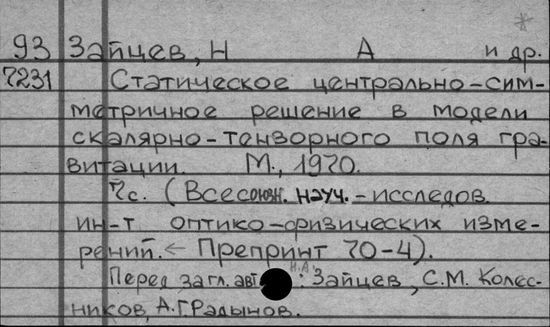 93 Зайцев, Н А и др.
7231 Статическое центрально-сим-
метричное решение в модели
скалярно-тензорного поля гра-
витации. М., 1970.
7с. (Всесоюзн. науч.-исследов.
ин-т оптико-физических изме-
рений. Препринт 70-4).
Перед загл. авт.: Н.А. Зайцев, С.М. Колес-
ников, А.Г. Радынов.